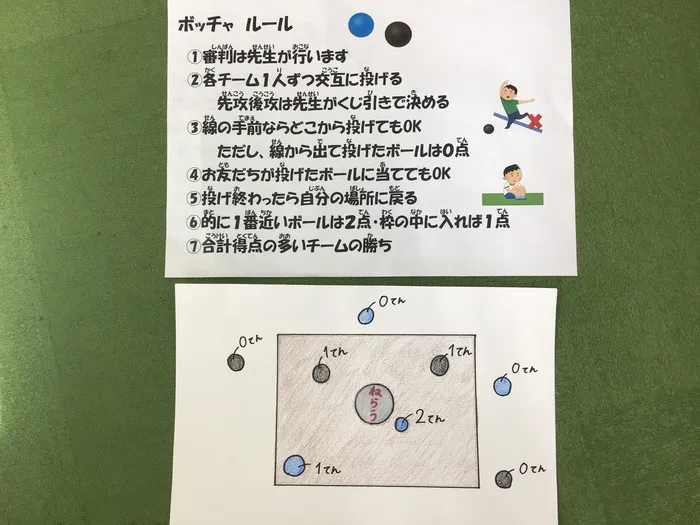 ボッチャ ルール
①審判は先生が行います
②各チーム1人ずつ交互に投げる
先攻後攻は先生がくじ引きで決める
③線の手前ならどこから投げてもOK
ただし、線から出て投げたボールは0点
④お友だちが投げたボールに当ててもOK
⑤投げ終わったら自分の場所に戻る
⑥的に1番近いボールは2点・枠の中に入れば1点
⑦合計得点の多いチームの勝ち
0てん
0てん
1てん
1てん
0てん
ねらう
2てん
1てん
0てん